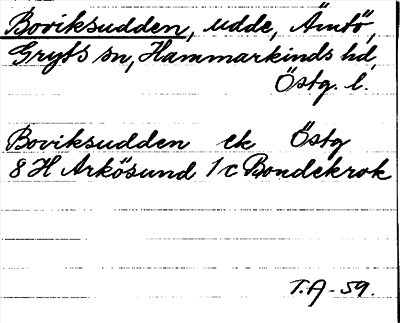 Boviksudden, udde, Ämtö,
Gryts sn, Hammarkinds hd,
Östg. l.
Boviksudden ek Östg
8 H Arkösund 1 c Bondekrok
T.A - 59.